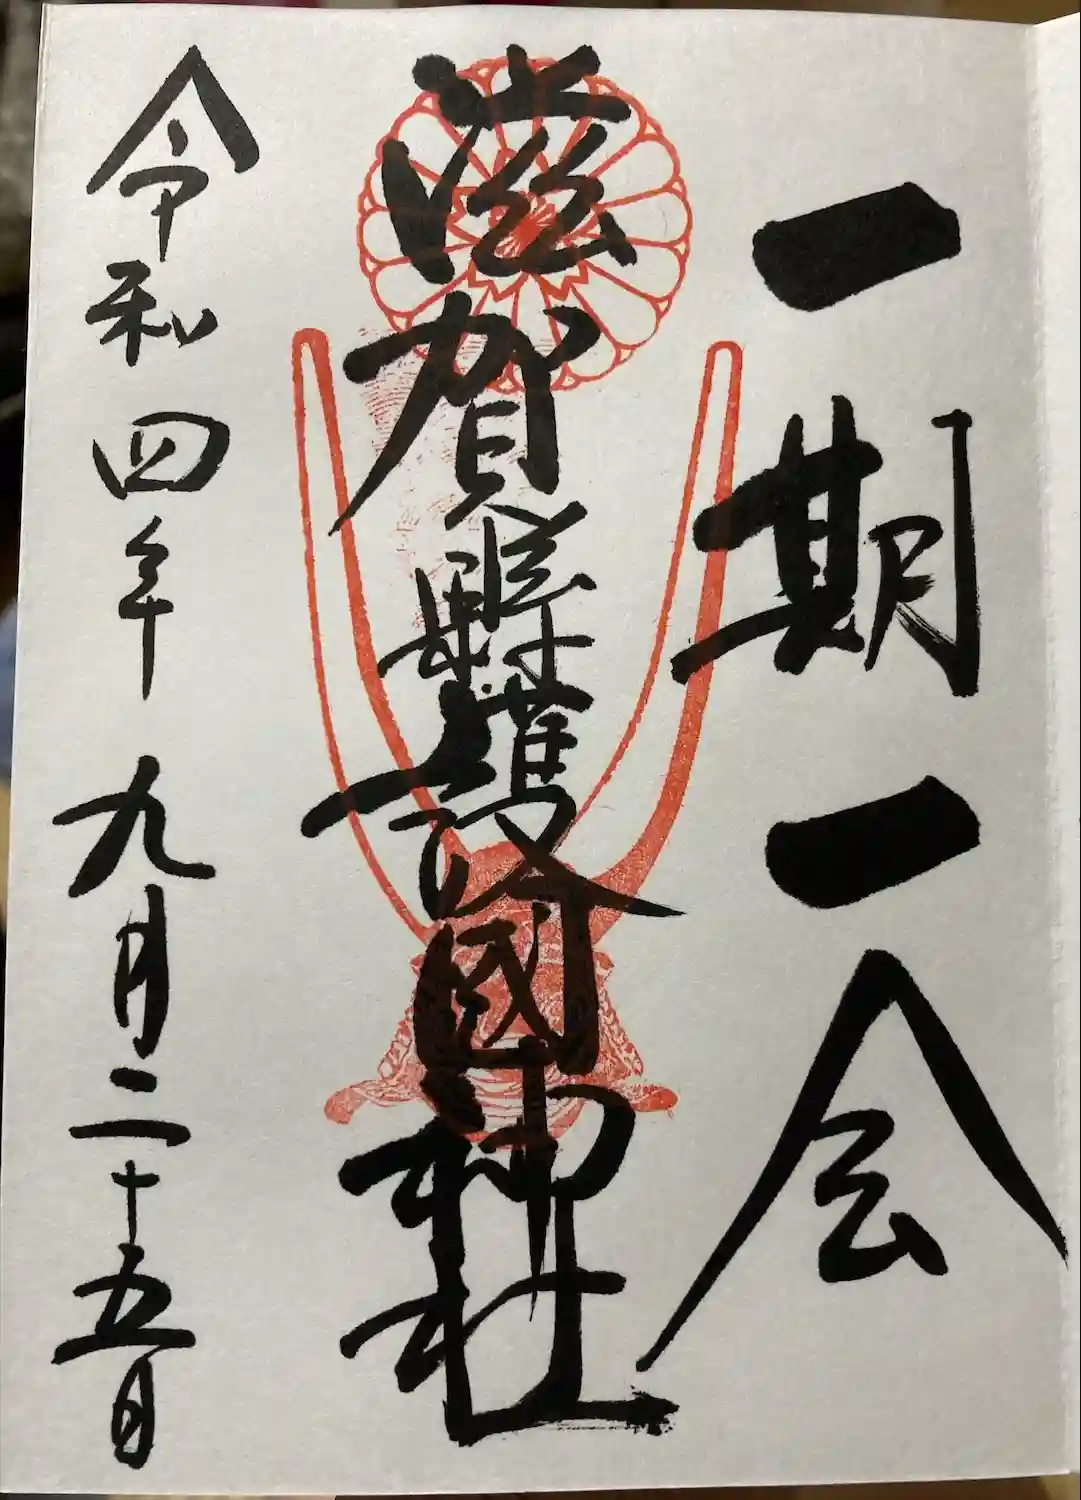 一期一会
滋賀縣護國神社
令和四年九月二十五日